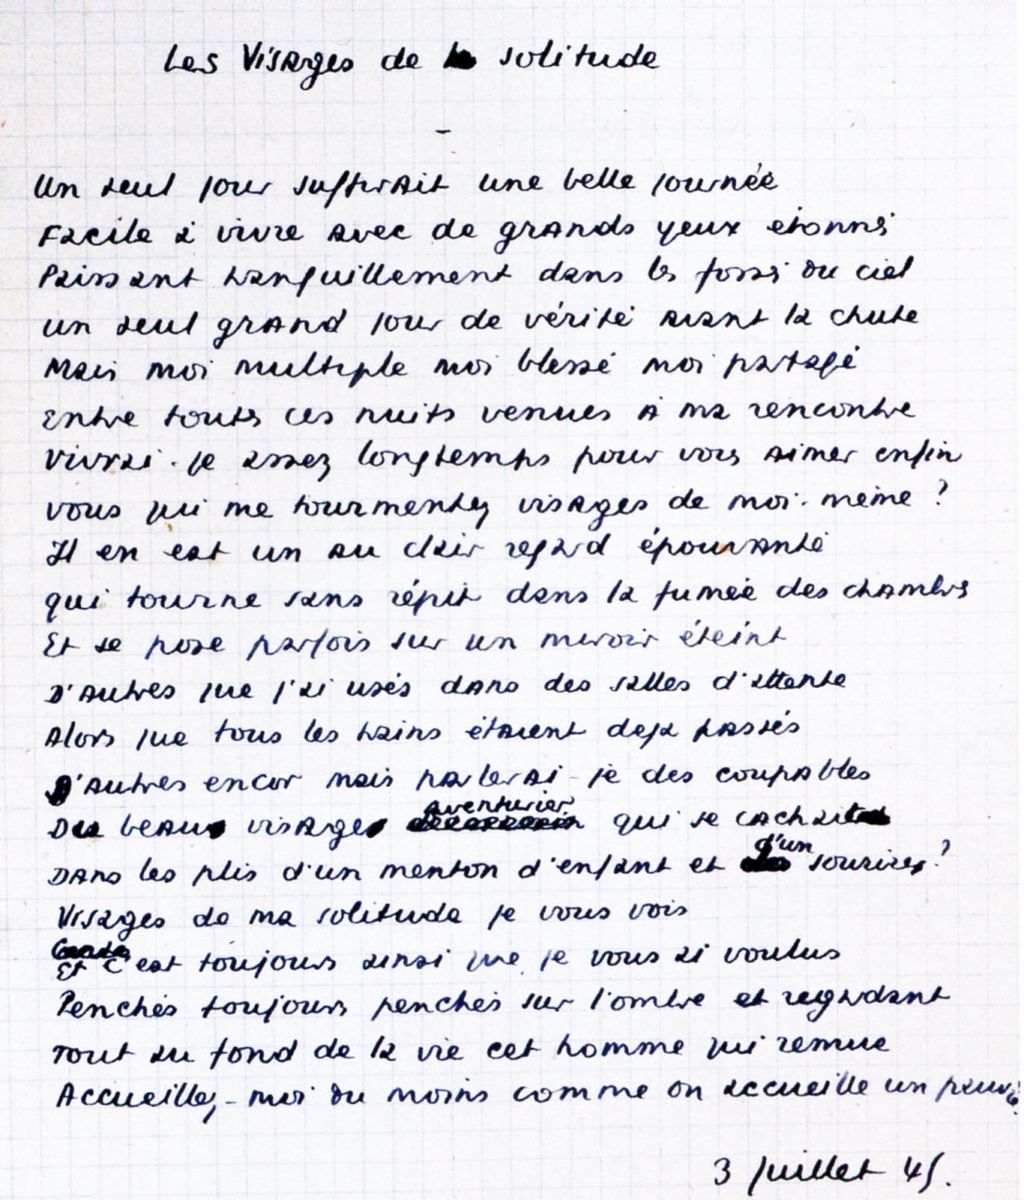 Les Visages de la solitude
-
Un seul jour suffirait une belle journée
Facile à vivre avec de grands yeux étonnés
Paissant tranquillement dans les fossés du ciel
un seul grand jour de vérité avant la chute
Mais moi multiple moi blessé moi partagé
Entre toutes ces nuits venues à ma rencontre
Vivrai-je assez longtemps pour vous aimer enfin
vous qui me tourmentez visages de moi-même ?
Il en est un au clair regard épouvanté
qui tourne sans répit dans la fumée des chambres
Et se pose parfois sur un miroir éteint
D'autres que j'ai usés dans des salles d'attente
Alors que tous les trains étaient deja passés
D'autres encor mais parlerai-je des coupables
Du beau visage aventurier qui se cachait
Dans les plis d'un menton d'enfant et d'un sourire ?
Visages de ma solitude je vous vois
Et c'est toujours ainsi que je vous ai voulus
Penchés toujours penchés sur l'ombre et regardant
Tout au fond de la vie cet homme qui remue
Accueillez-moi du moins comme on accueille un pauvre
3 juillet 45.